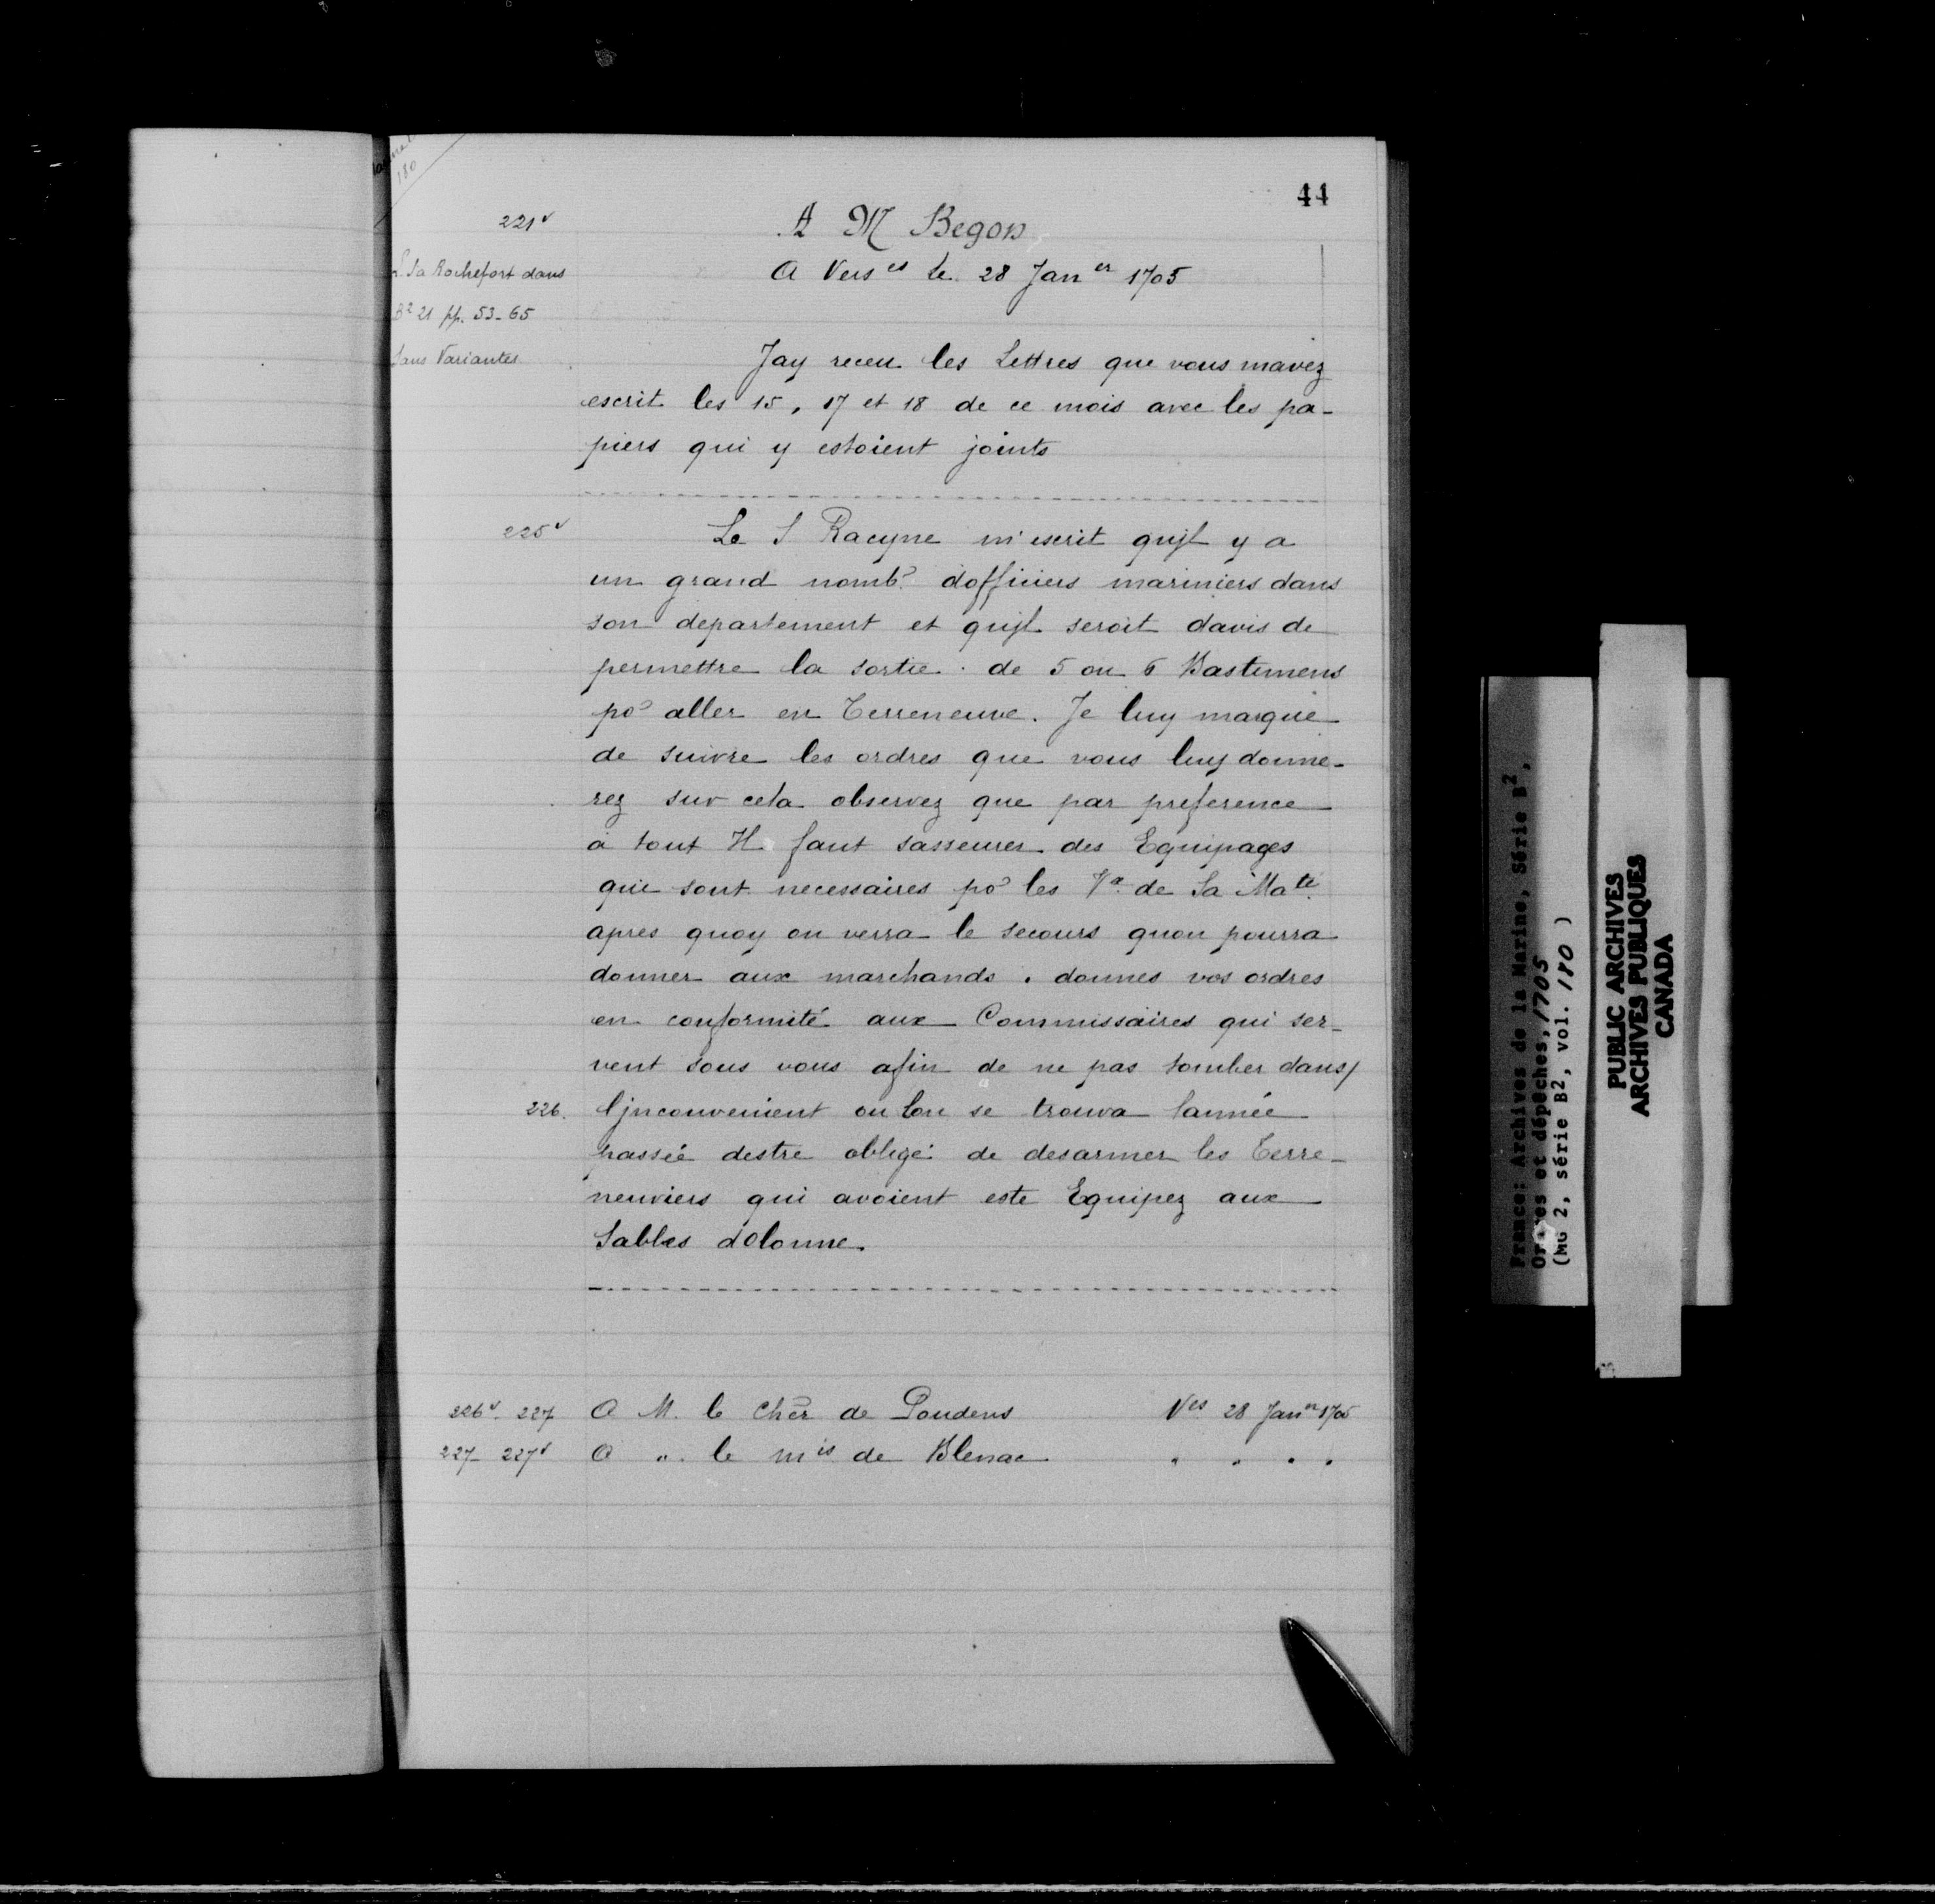 44
180
221v
A M Begon
L. La Rochefort dans
A Vers es Le 28 Jan er 1705
B2 21 pp. 53-65
Sans Variantes
Jay receu les Lettres que vous mavez
escrit les 15, 17 et 18 de ce mois avec les pa-
piers qui y estoient joints
225v
Le S Racyne m'escrit qujl y a
un grand nombre dofficiers mariniers dans
son departement et qujl seroit davis de
permettre la sortie de 5 ou 6 Bastimens
po aller en Terreneuve. Je luy marque
de suivre les ordres que vous luy donne-
rez sur cela observez que par preference
à tout Il faut sasseurer des Equipages
qui sont necessaires po les Vx de Sa Maté
apres quoy on verra le secours quon pourra
donner aux marchands. donnes vos ordres
en conformité aux Commissaires qui ser-
vent sous vous afin de ne pas tomber dans/
226. ljnconvenient ou lon se trouva lannée
passée destre obligé de desarmer les Terre-
neuviers qui avoient este Equipez aux
Sables dOlonne.
226v. 227 A M. le Cher de Poudens Ves 28 Janer 1705
227-227v A " le mis de Blenac " " " "
France: Archives de la Marine, Série B2,
Ordres et dépêches, 1705
(MG 2, série B2, vol. 180 )
PUBLIC ARCHIVES
ARCHIVES PUBLIQUES
CANADA